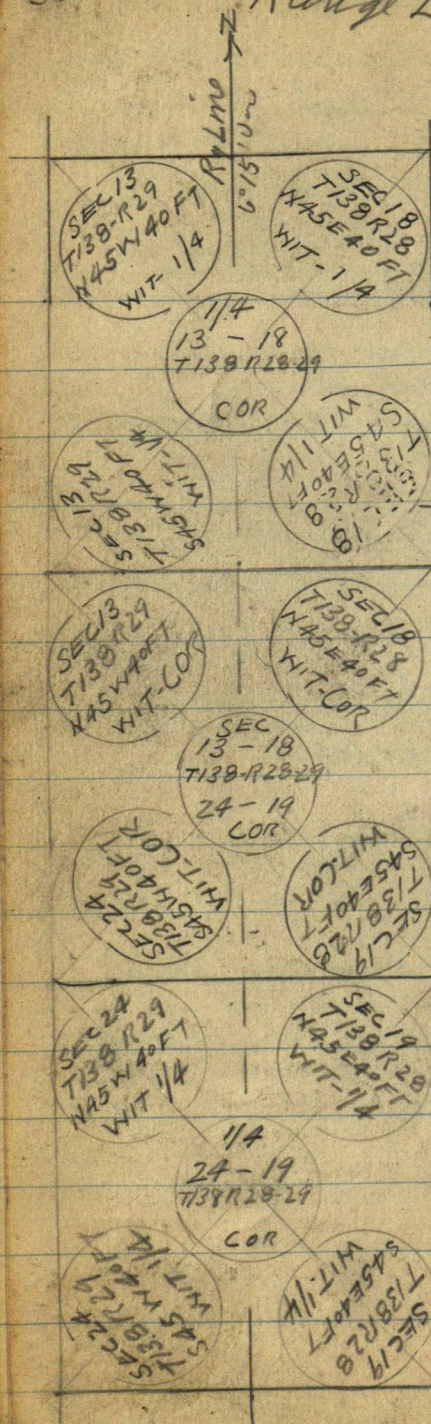 Range
N
Rg Line
6°15'
SEC 13
T138-R29
N45W40FT
WIT-1/4
SEC 18
T138R28
N45E40FT
WIT-1/4
1/4
13 - 18
T138R28-29
COR
SEC 13
T138R29
S45W40FT
WIT-1/4
WIT 1/4
S45E40FT
SEC 13
T138-R29
N45W40FT
WIT-COR
SEC 18
T138-R28
N45E40FT
WIT-COR
SEC
13 - 18
T138-R28-29
24 - 19
COR
SEC 24
T138R29
S45W40FT
WIT-COR
WIT-COR
S45E40FT
T138R28
SEC 19
SEC 24
T138R29
N45W40FT
WIT 1/4
SEC 19
T138R28
N45E40FT
WIT-1/4
1/4
24 - 19
T138R28-29
COR
SEC 24
T138R29
S45W40FT
WIT, 1/4
WIT. 1/4
S45E40FT
T138R28
SEC 19